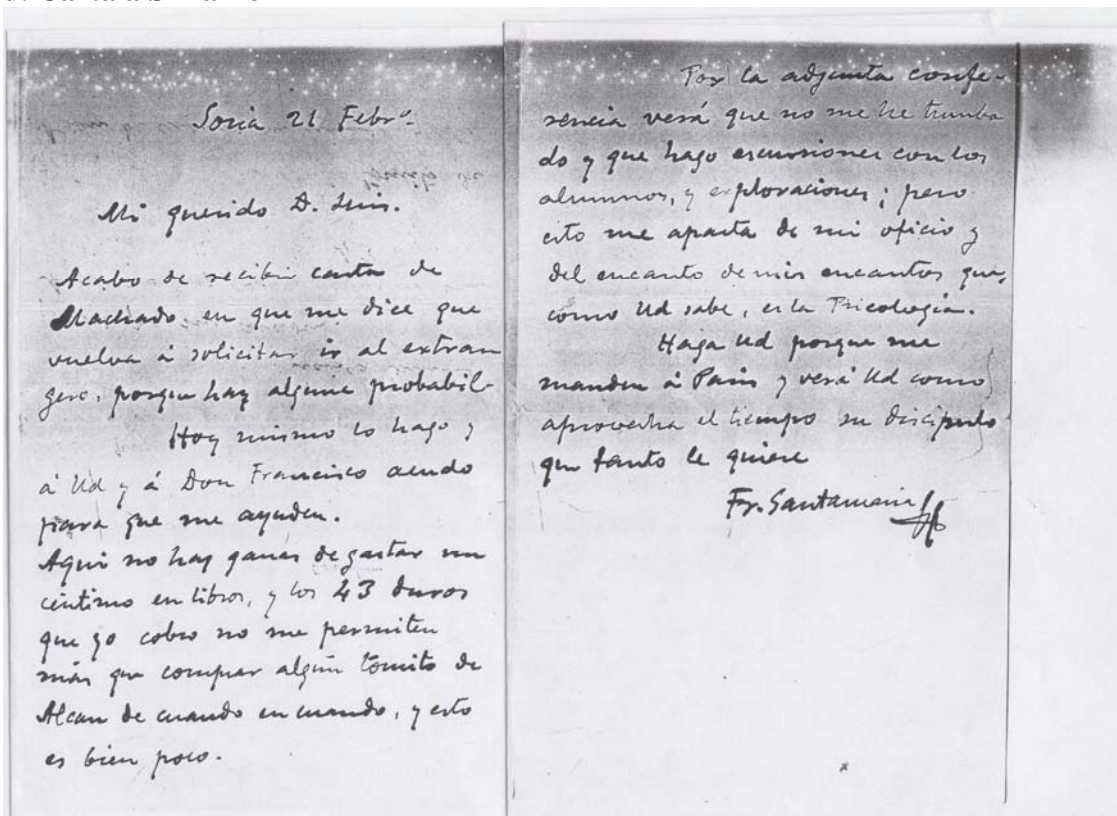 Soria 21 Febrº
Mi querido D. Luis.
Acabo de recibir carta de
Machado en que me dice que
vuelva á solicitar ir al extran
gero, porque hay alguna probabil-
Hoy mismo lo hago y
á Ud y á Don Francisco acudo
para que me ayuden.
Aqui no hay ganas de gastar un
céntimo en libros, y los 43 duros
que yo cobro no me permiten
más que comprar algún tomito de
Alcan de cuando en cuando, y esto
es bien poco.
Por la adjunta confe-
rencia verá que no me he tumba
do y que hago escursiones con los
alumnos, y exploraciones; pero
esto me aparta de mi oficio y
del encanto de mis encantos que,
como Ud sabe, es la Psicología.
Haga Ud porque me
manden á Paris y verá Ud como
aprovecha el tiempo su discípulo
que tanto le quiere
Fr. Santamaria